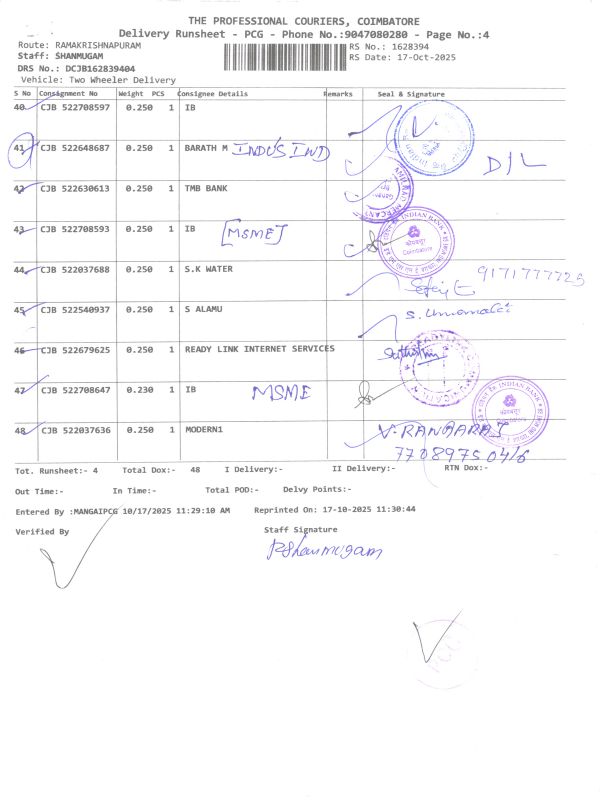 THE PROFESSIONAL COURIERS, COIMBATORE
Delivery Runsheet - PCG - Phone No.:9047080280 - Page No.:4
Route: RAMAKRISHNAPURAM RS No.: 1628394
Staff: SHANMUGAM RS Date: 17-Oct-2025
DRS No.: DCJB162839404
Vehicle: Two Wheeler Delivery
S No Consignment No Weight PCS Consignee Details Remarks Seal & Signature
40 CJB 522708597 0.250 1 IB
41 CJB 522648687 0.250 1 BARATH M INDUS IND D/L
42 CJB 522630613 0.250 1 TMB BANK
43 CJB 522708593 0.250 1 IB [MSME] INDIAN BANK कोयम्बत्तूर Coimbatore
44 CJB 522037688 0.250 1 S.K WATER 9171777725
45 CJB 522540937 0.250 1 S ALAMU S. Umamalai
46 CJB 522679625 0.250 1 READY LINK INTERNET SERVICES
47 CJB 522708647 0.230 1 IB MSME INDIAN BANK
48 CJB 522037636 0.250 1 MODERN1 V-RANGARAJ
7708975 04/6
Tot. Runsheet:- 4 Total Dox:- 48 I Delivery:- II Delivery:- RTN Dox:-
Out Time:- In Time:- Total POD:- Delvy Points:-
Entered By :MANGAIPCG 10/17/2025 11:29:10 AM Reprinted On: 17-10-2025 11:30:44
Verified By Staff Signature
P.Shanmugam
PCG